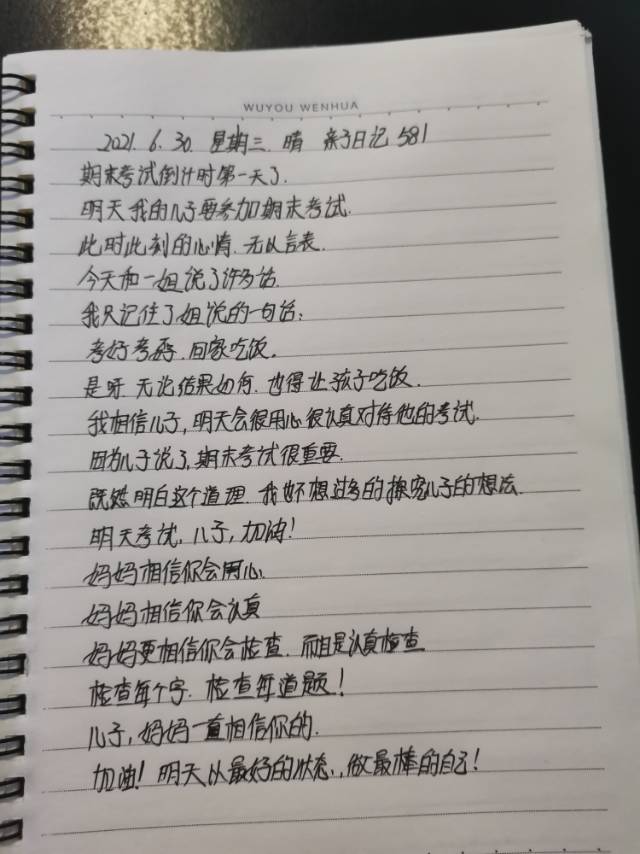 WUYOU WENHUA
2021. 6. 30. 星期三. 晴 亲子日记 581
期末考试倒计时第一天了.
明天我的儿子要参加期末考试.
此时此刻的心情.无以言表.
今天和一姐说了许多话.
我只记住了姐说的一句话:
考好考孬.回家吃饭。
是呀 无论结果如何.也得让孩子吃饭.
我相信儿子,明天会很用心很认真对待他的考试.
因为儿子说了,期末考试很重要.
既然明白这个道理.我也不想过多的探究儿子的想法.
明天考试,儿子,加油!
妈妈相信你会用心.
妈妈相信你会认真
妈妈更相信你会检查.而且是认真检查
检查每个字.检查每道题!
儿子,妈妈一直相信你的.
加油!明天以最好的状态,做最棒的自己!